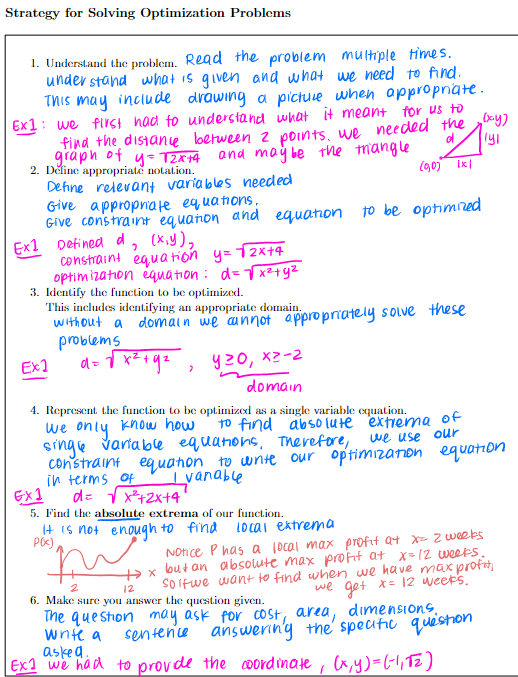 Strategy for Solving Optimization Problems
1. Understand the problem. Read the problem multiple times.
understand what is given and what we need to find.
This may include drawing a picture when appropriate.
Ex1: we first had to understand what it meant for us to
find the distance between 2 points. We needed the
graph of y=√2x+4 and maybe the triangle
(x,y)
d
|y|
(0,0) |x|
2. Define appropriate notation.
Define relevant variables needed
Give appropriate equations.
Give constraint equation and equation to be optimized
Ex1 Defined d, (x,y),
constraint equation y=√2x+4
optimization equation: d=√x²+y²
3. Identify the function to be optimized.
This includes identifying an appropriate domain.
without a domain we cannot appropriately solve these
problems
Ex1 d=√x²+y², y≥0, x≥-2
domain
4. Represent the function to be optimized as a single variable equation.
We only know how to find absolute extrema of
single variable equations. Therefore, we use our
constraint equation to write our optimization equation
in terms of 1 variable
Ex1 d= √x²+2x+4
5. Find the absolute extrema of our function.
It is not enough to find local extrema
P(x)
x
2 12
Notice P has a local max profit at x=2 weeks
but an absolute max profit at x=12 weeks.
So if we want to find when we have max profit,
we get x=12 weeks.
6. Make sure you answer the question given.
The question may ask for cost, area, dimensions.
Write a sentence answering the specific question
asked.
Ex1 we had to provide the coordinate, (x,y)=(-1,√2)